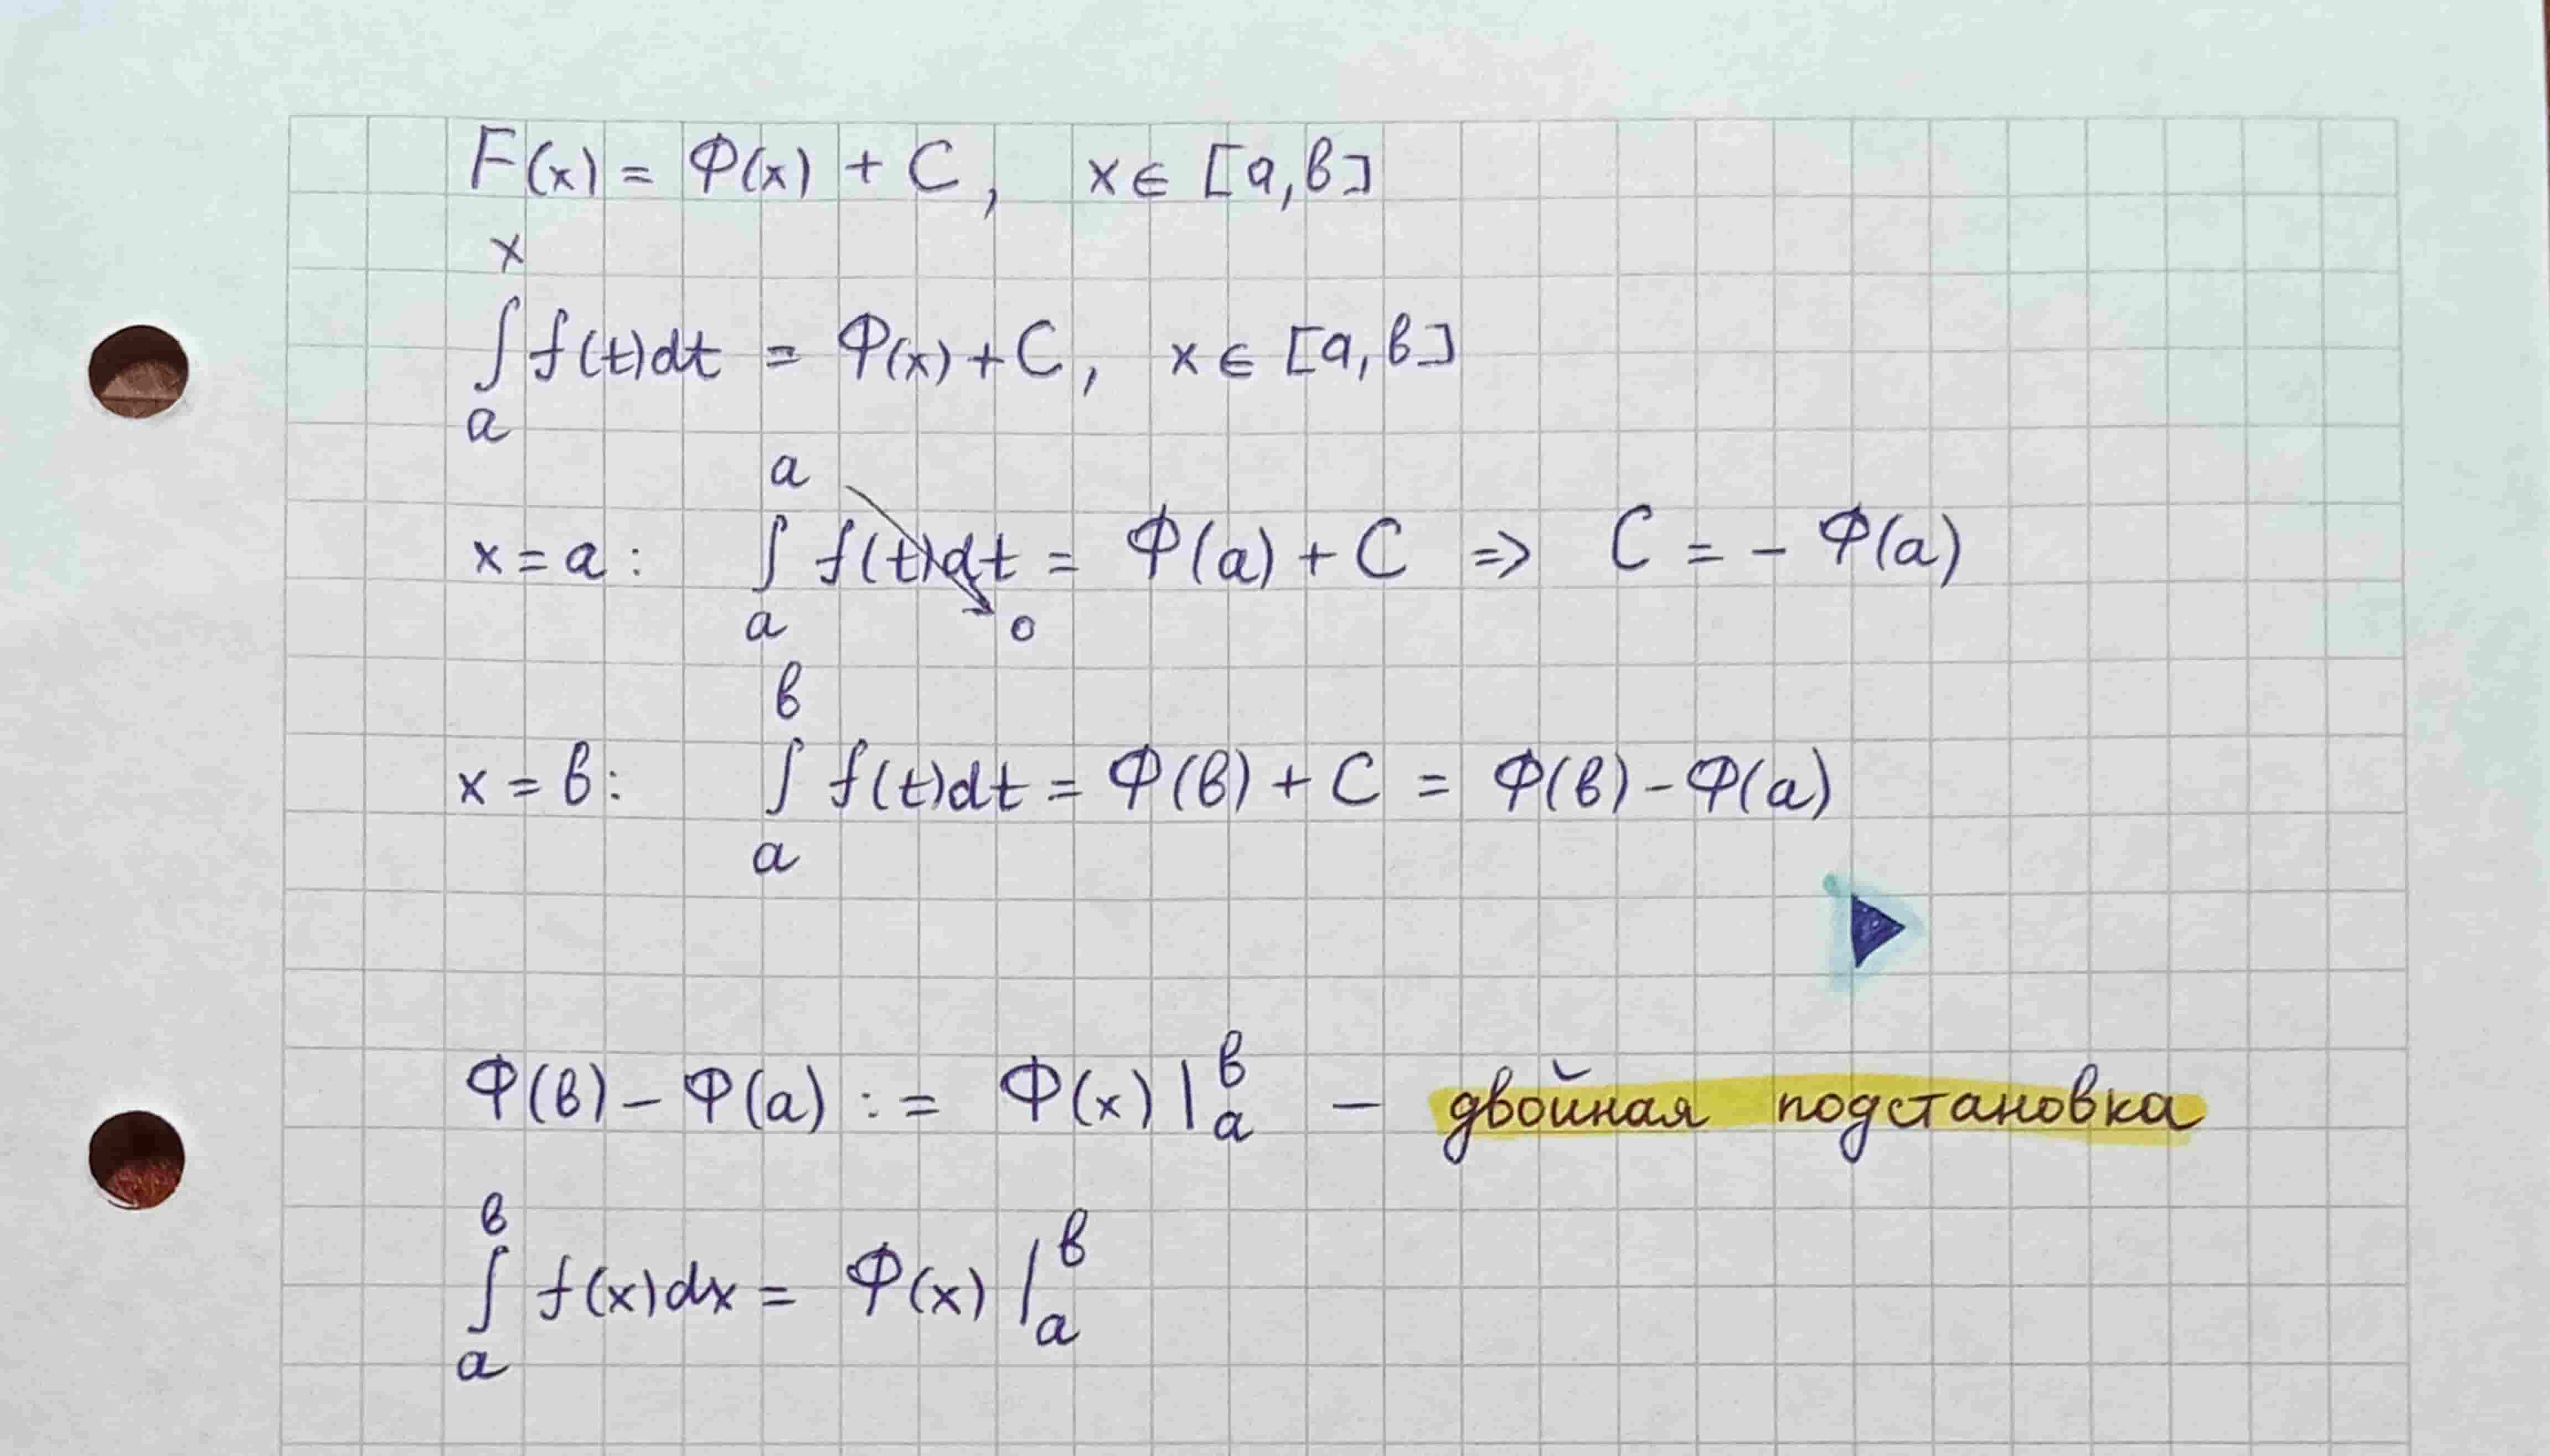 F(x) = Φ(x) + C, x ∈ [a, в]
∫ₐˣ f(t)dt = Φ(x) + C, x ∈ [a, в]
x = a: ∫ₐᵃ f(t)dt → 0 = Φ(a) + C => C = - Φ(a)
x = в: ∫ₐᵇ f(t)dt = Φ(в) + C = Φ(в) - Φ(a)
Φ(в) - Φ(a) := Φ(x) |ₐᵇ — двойная подстановка
∫ₐᵇ f(x)dx = Φ(x) |ₐᵇ